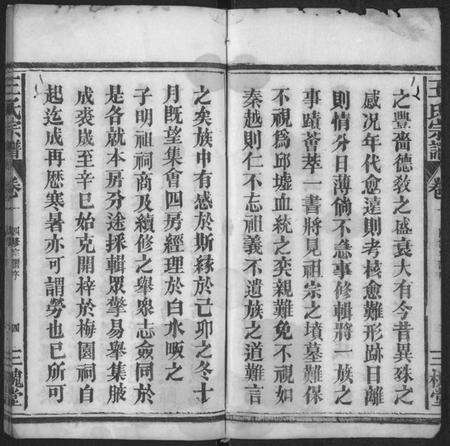 王氏宗譜
卷一
三槐堂
之豐嗇德敎之盛衰大有今昔異殊之
感況年代愈遠則考核愈難形跡日離
則情分日薄倘不急事修輯將一族之
事蹟薈萃一書將見祖宗之墳墓難保
不視爲邱墟血統之奕親難免不視如
秦越則仁不忘祖義不遺族之道難言
之矣族中有感於斯緣於己卯之冬十
月既望集會四房經理於白水畈之
子明祖祠商及續修之舉衆志僉同於
是各就本房分途採輯眾擎易舉集腋
成裘歲至辛巳始克開梓於梅園祠自
起迄成再歷寒暑亦可謂勞也已所可
王氏宗譜
卷一
四
三槐堂